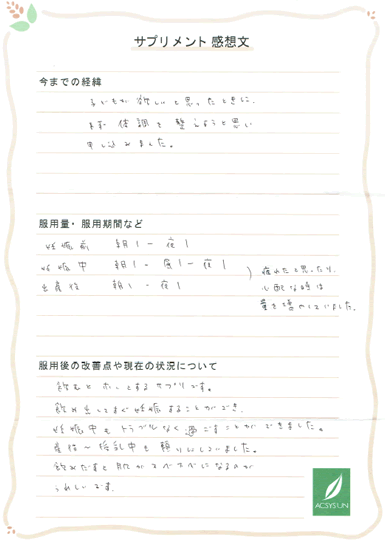 サプリメント 感想文
今までの経緯
子どもが欲しいと思ったときに、
まず 体調を 整えようと思い
申し込みました。
服用量・服用期間など
妊娠前 朝1 - 夜1
妊娠中 朝1 - 昼1 - 夜1
出産後 朝1 - 夜1
) 疲れたと思ったり、
心配な時は
量を増やしていました。
服用後の改善点や現在の状況について
飲むとホッとするサプリです。
飲み出してすぐ妊娠することができ、
妊娠中もトラブルなく過ごすことができました。
産後〜授乳中も頼りにしていました。
飲みだすと肌がすべすべになるのが
うれしいです。
ACSYSUN